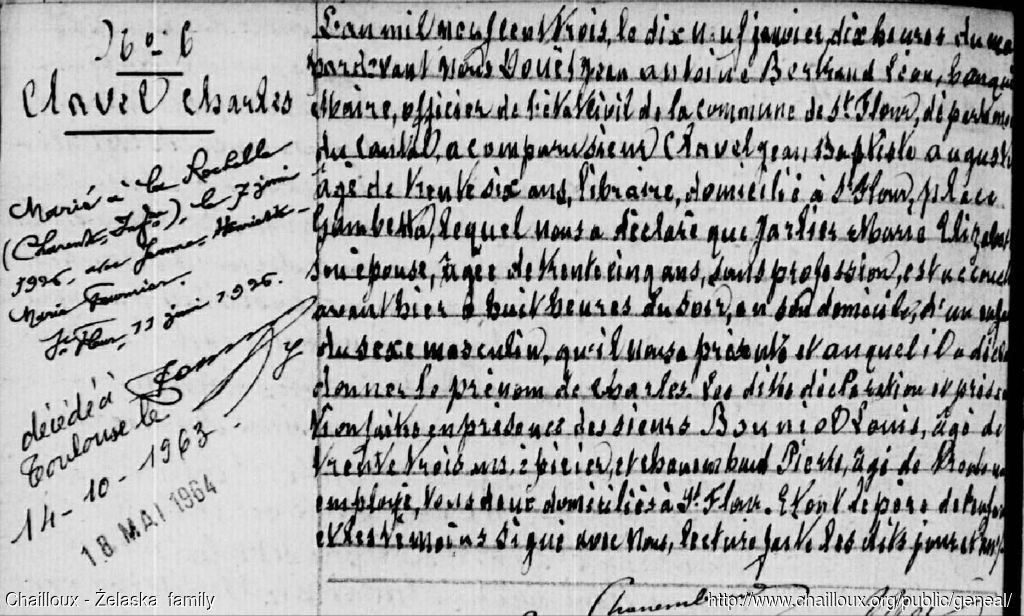 No 6
Clavel Charles
Marié à La Rochelle
(Charente Infre), le 7 juin
1926, avec Jeanne Henriette
Maria Fournier.
St Flour, 11 juin 1926.
décédé à
Toulouse le
14-10-1963
18 MAI 1964
L'an mil neuf cent trois, le dix neuf janvier, dix heures du
pardevant nous Jean Antoine Bertrand Léon,
Maire, officier de l'état civil de la commune de St Flour, départeme
du Cantal, a comparu sieur Clavel Jean Baptiste Auguste
âgé de trente six ans, libraire, domicilié à St Flour, place
Gambetta, lequel nous a déclaré que Jarlier Maria Elizabe
son épouse, âgée de trente cinq ans, sans profession, est accouch
avant hier à huit heures du soir, en son domicile, d'un enfa
du sexe masculin, qu'il nous a présenté et auquel il a décla
donner le prénom de Charles. Les dites déclaration et présen
tion faites en présence des sieurs Bouniol Louis, âgé de
trente trois ans, épicier, et Pierre, âgé de
employé, tous deux domiciliés à St Flour. Et ont le père de l'enfan
et les témoins signé avec nous, lecture faite les dits jour et an
Chailloux - Żelaska family
http://www.chailloux.org/public/geneal/